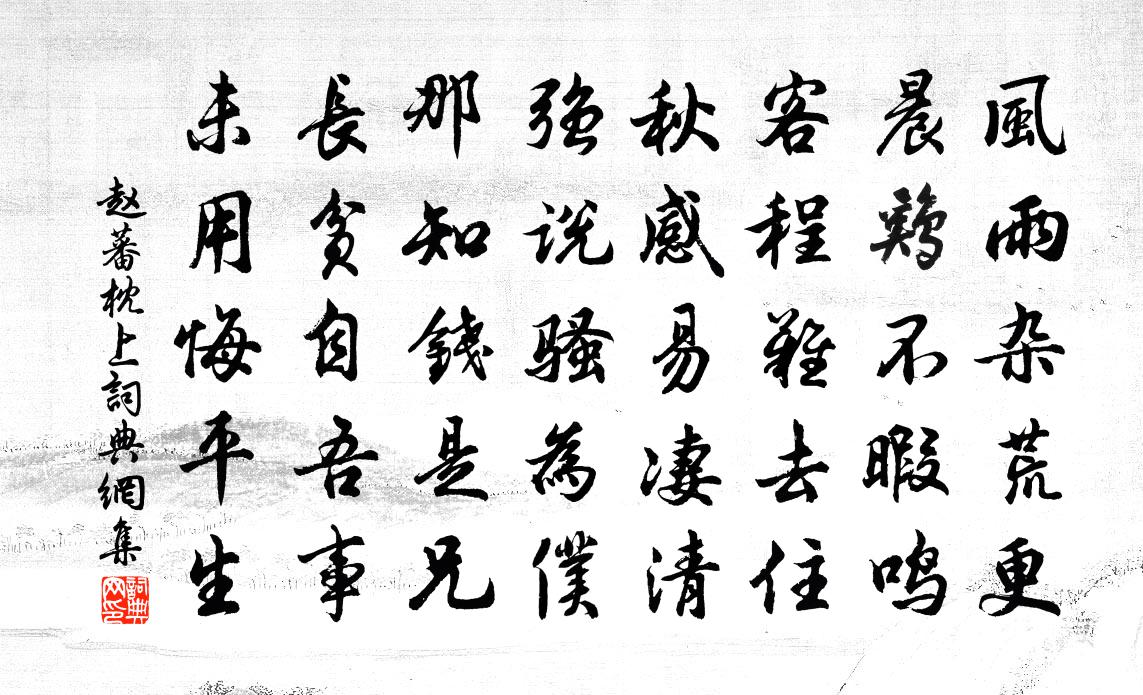 風雨杂荒更
晨鷄不暇鸣
客程難去住
秋感易凄清
強説騷為僕
那知錢是兄
長貧自吾事
未用悔平生
赵蕃枕上詞典網集
詞典网印